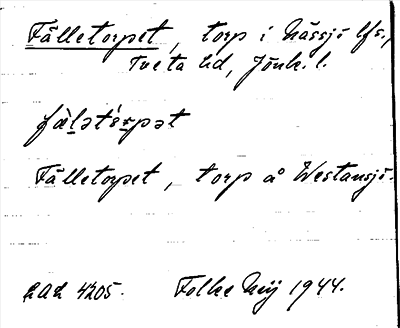 Fälletorpet, torp i Nässjö lfs.,
Tveta hd, Jönk. l.
fæ̀lətɔ́rpət
Fälletorpet, torp å Westansjö.
LAL 4205. Folke Nij 1944.